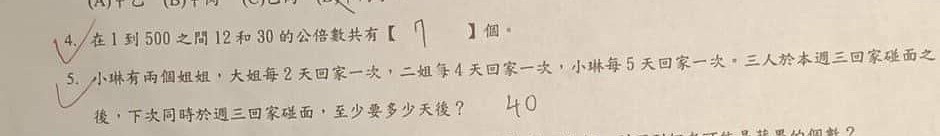 4. 在1到500之間12和30的公倍數共有【 7 】個。
5. 小琳有兩個姐姐，大姐每2天回家一次，二姐每4天回家一次，小琳每5天回家一次。三人於本週三回家碰面之
後，下次同時於週三回家碰面，至少要多少天後？ 40